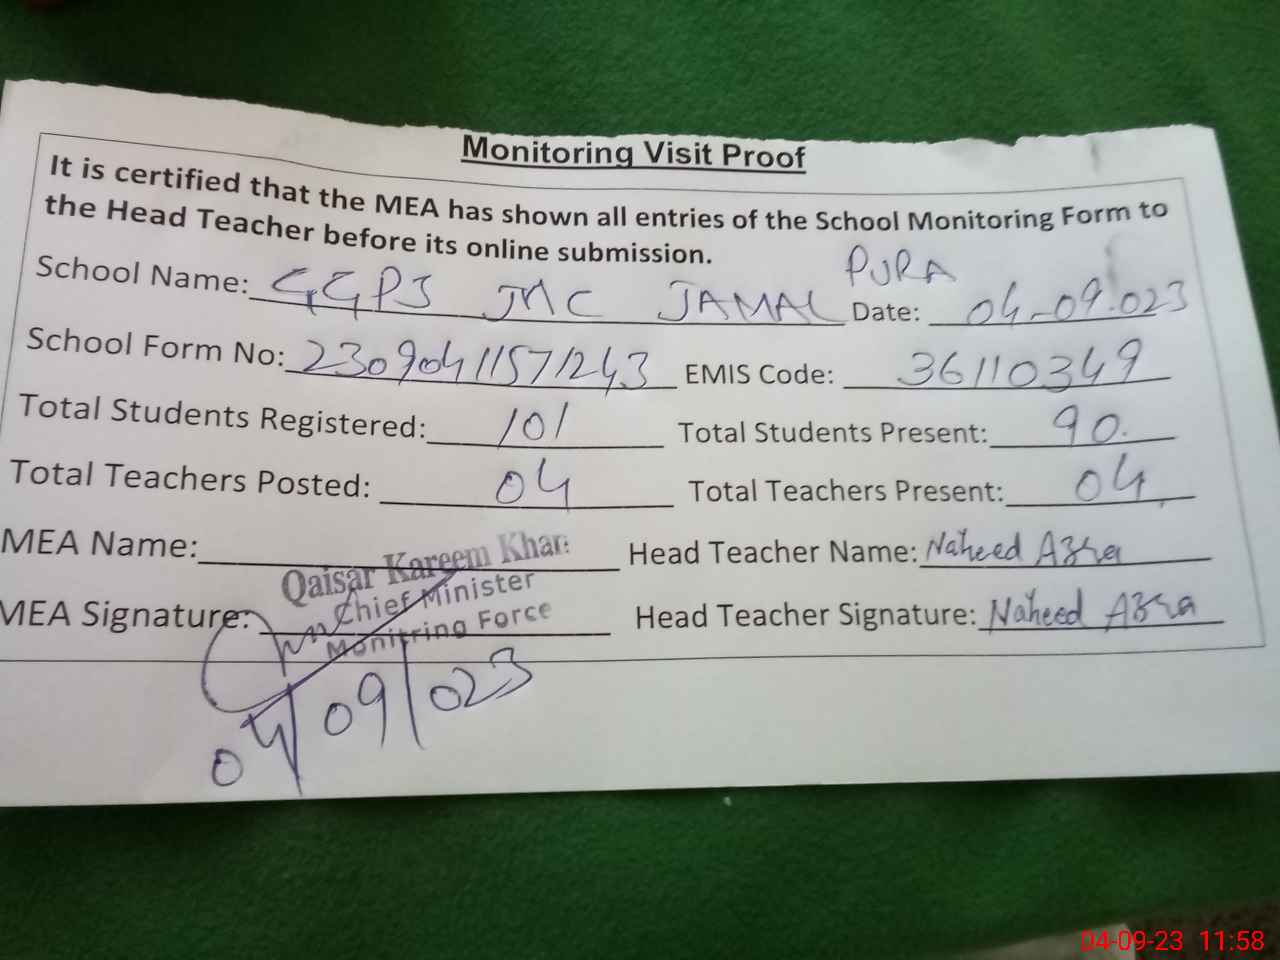 Monitoring Visit Proof
It is certified that the MEA has shown all entries of the School Monitoring Form to
the Head Teacher before its online submission.
PURA
School Name: GGPS JMC JAMAL Date: 04-09.023
School Form No: 23090411571243 EMIS Code: 36110349
Total Students Registered: 101 Total Students Present: 90.
Total Teachers Posted: 04 Total Teachers Present: 04
MEA Name: Qaisar Kareem Khan Head Teacher Name: Naheed Azra
Chief Minister
MEA Signature: Monitring Force Head Teacher Signature: Naheed Azra
04/09/023
04-09-23 11:58